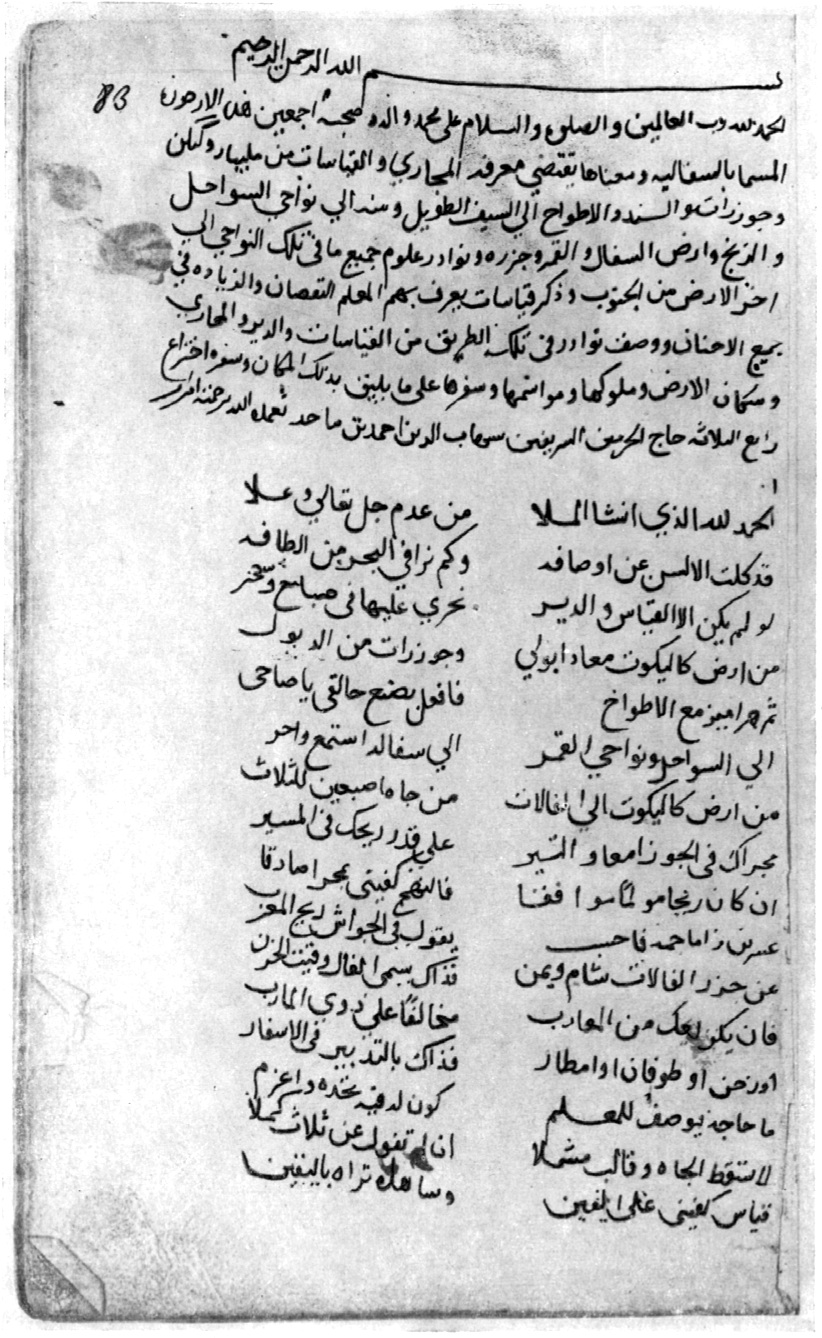 بسم الله الرحمن الرحيم
83
الحمد لله رب العالمين والصلوة والسلام على محمد واله وصحبه اجمعين هذه الارجوزة
المسما بالسفاليه ومعناها يقتضي معرفة المجاري والقياسات من مليبار وكنكن
وجوزرات والسند والاطواح الي السيف الطويل ومنه الي نواحي السواحل
والزنج وارض السفال والقمر وجزره ونوادر علوم جميع ما في تلك النواحي الي
اخر الارض من الجنوب وذكر قياسات يعرف بهم المعلم النقصان والزياده في
جميع الاخنان ووصف نوادر في تلك الطريق من القياسات والدير والمجاري
وسكان الارض وملوكها ومواسمها وسفرها على ما يليق بذلك المكان وسفره اختراع
رابع الثلاثه حاج الحرمين الشريفين شهاب الدين احمد بن ماجد تغمده الله برحمته امين
الحمد لله الذي انشا الملا من عدم جل تعالي وعلا
قد كلت الالسن عن اوصافه وكم نرا في البحر من الطافه
لو لم يكن الا القياس والدير نجري عليها في صباح وسحر
من ارض كاليكوت معاد ابولي وجوزرات من الديول
ثم هراميز مع الاطواخ فافعل بصنع خالقي يا صاحي
الي السواحل ونواحي القمر الي سفاله استمع واحر
من ارض كاليكوت الي الفالات من جاه اصبعين للثلاث
مجراك في الجوزا معا والتير علي قدر ريحك في المسير
ان كان ريحا مولما موافقا فالنهج كفيتي بمجرا صادقا
فاحسب يقول في الجواش ريح المغرب
عن جزر الفالات شام ويمن فذاك يسمى الفال وقيت الحزن
فان يكن ريحك من المغارب مخالفا علي ذوي المارب
اورزحن او طوفان او امطار فذاك بالتدبير في الاسفار
ما حاجة يوصف للمعلم كون لديه نجده واعزم
لا تسقط الجاه وقالب مشملا ان لم تفول عن ثلاث كملا
قياس كفيتي غلي ايقين وساهله تراه باليقين